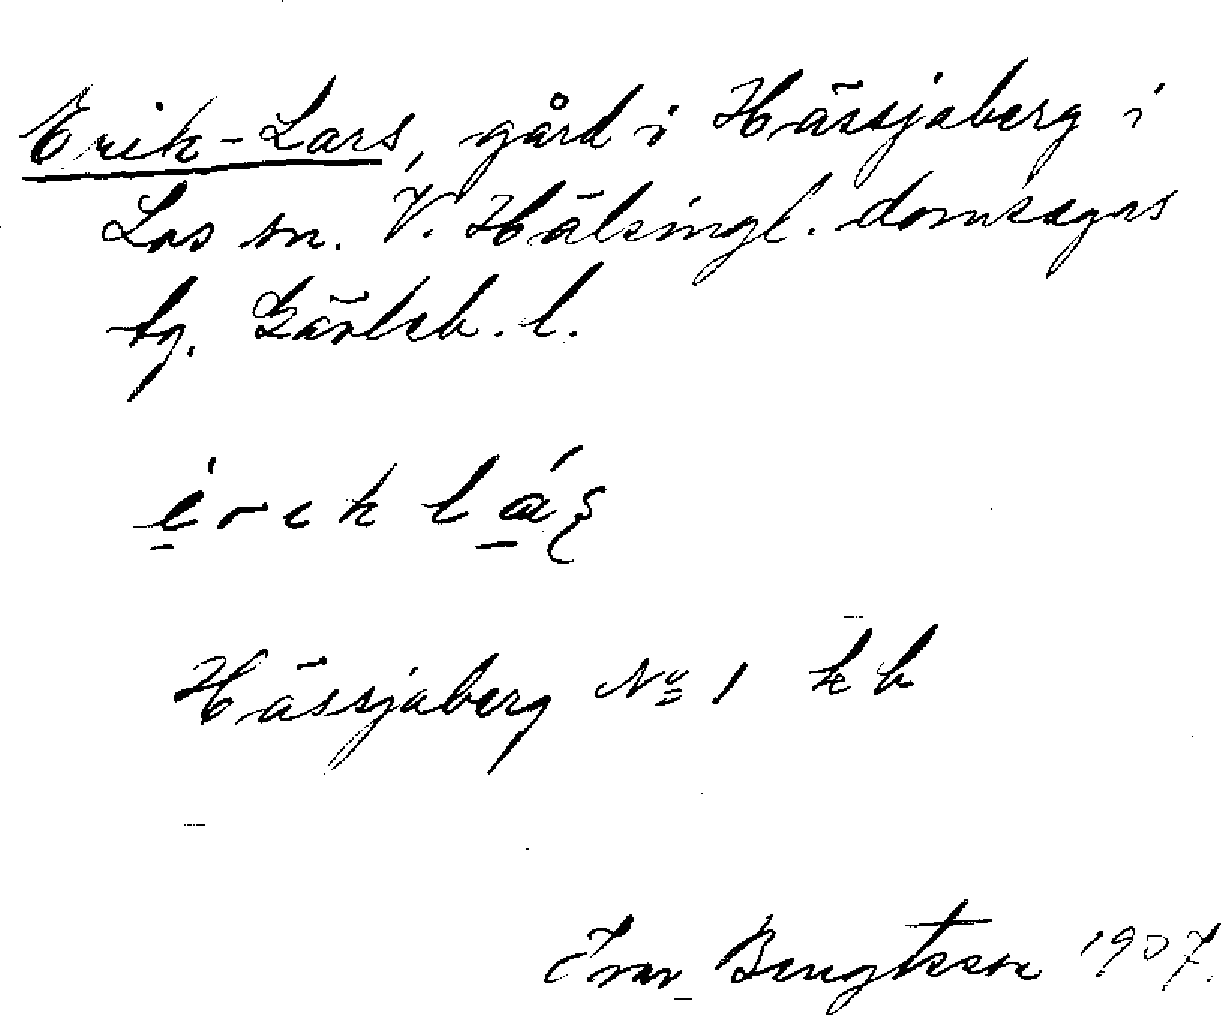 Erik-Lars, gård i Hässjaberg i
Los sn. V. Hälsingl. domsagas
tg. Gävleb. l.
Hässjaberg No 1 kb
Ivar Bengtsson 1907.